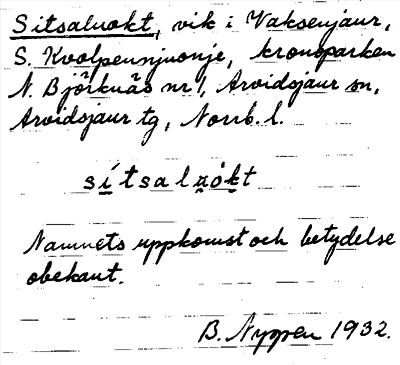 Sitsaluokt, vik i Vaksenjaur,
S. Kvolpennjuonje, kronoparken
N. Björknäs nr 1, Arvidsjaur sn,
Arvidsjaur tg, Norrb. l.
Namnets uppkomst och betydelse
obekant.
B. Nyppen 1932.